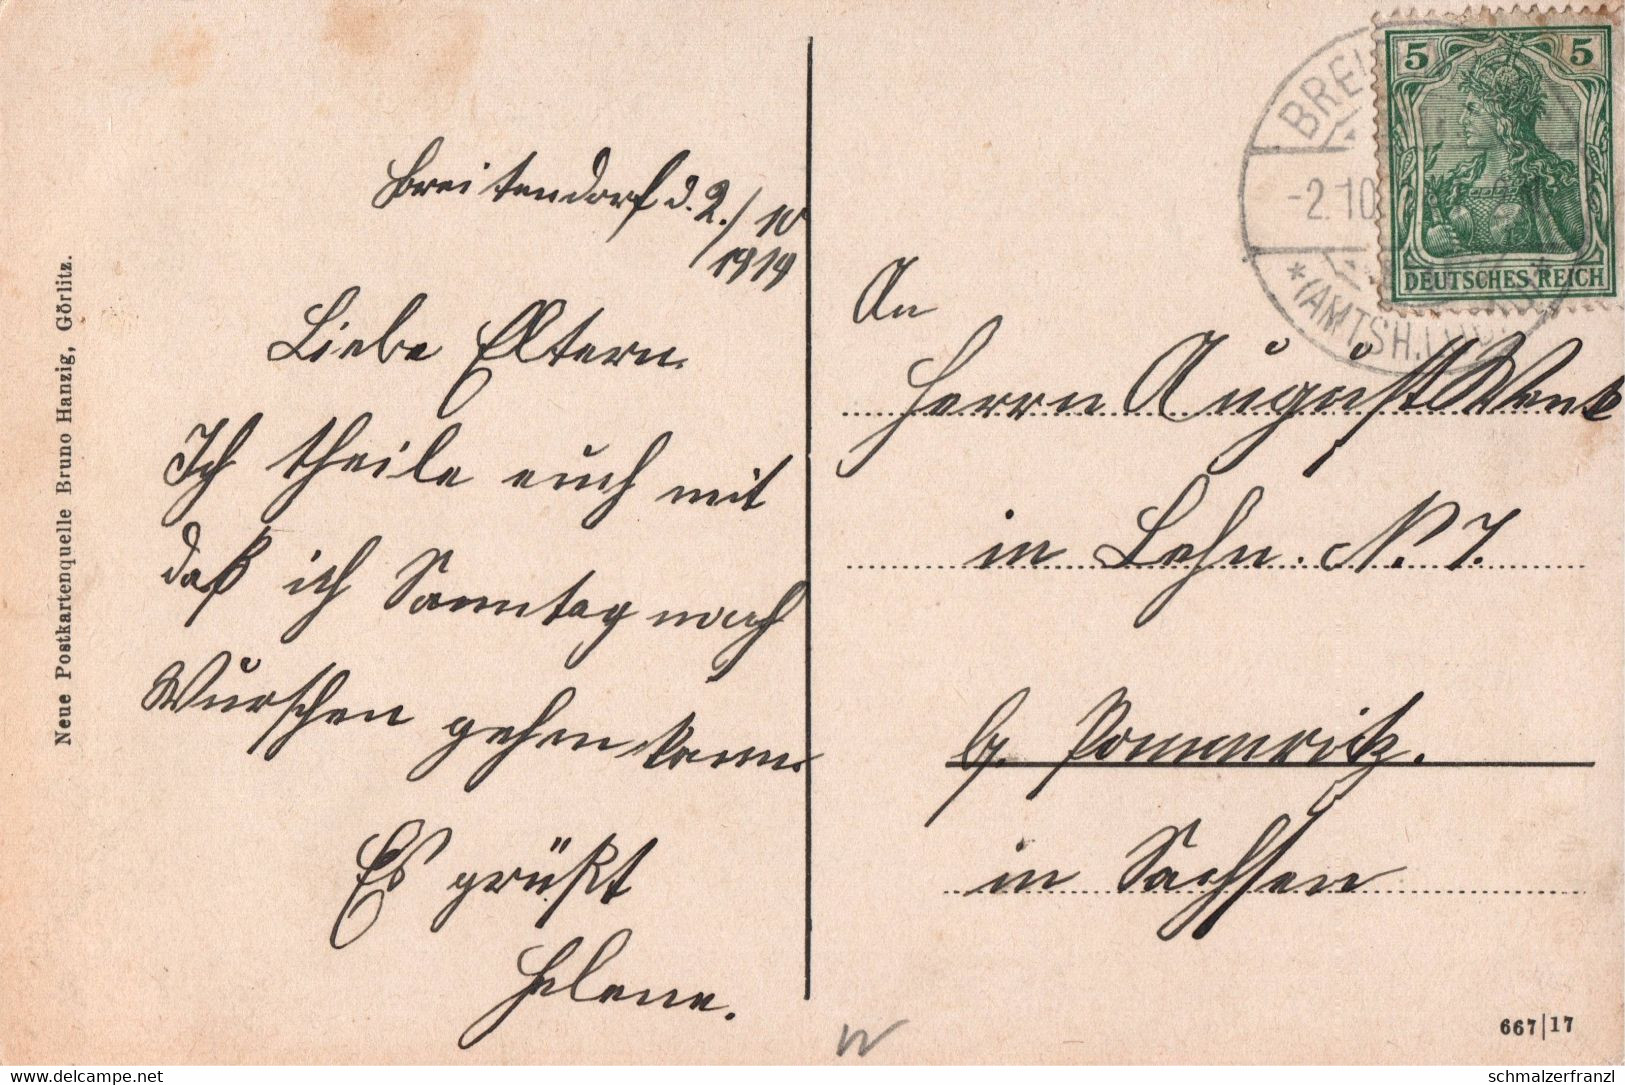 Neue Postkartenquelle Bruno Hanzig, Görlitz.
Breitendorf d. 2./10
1919
Liebe Eltern.
Ich theile euch mit
daß ich Sonntag nach
Wurschen gehen kann.
Es grüßt
Helene.
5 5
DEUTSCHES REICH
BREI
-2.10
*(AMTSH.
An
Herrn August Wenk
in Lehn. N. 7.
b. Pommritz.
in Sachsen
667|17
www.delcampe.net
schmalzerfranzl